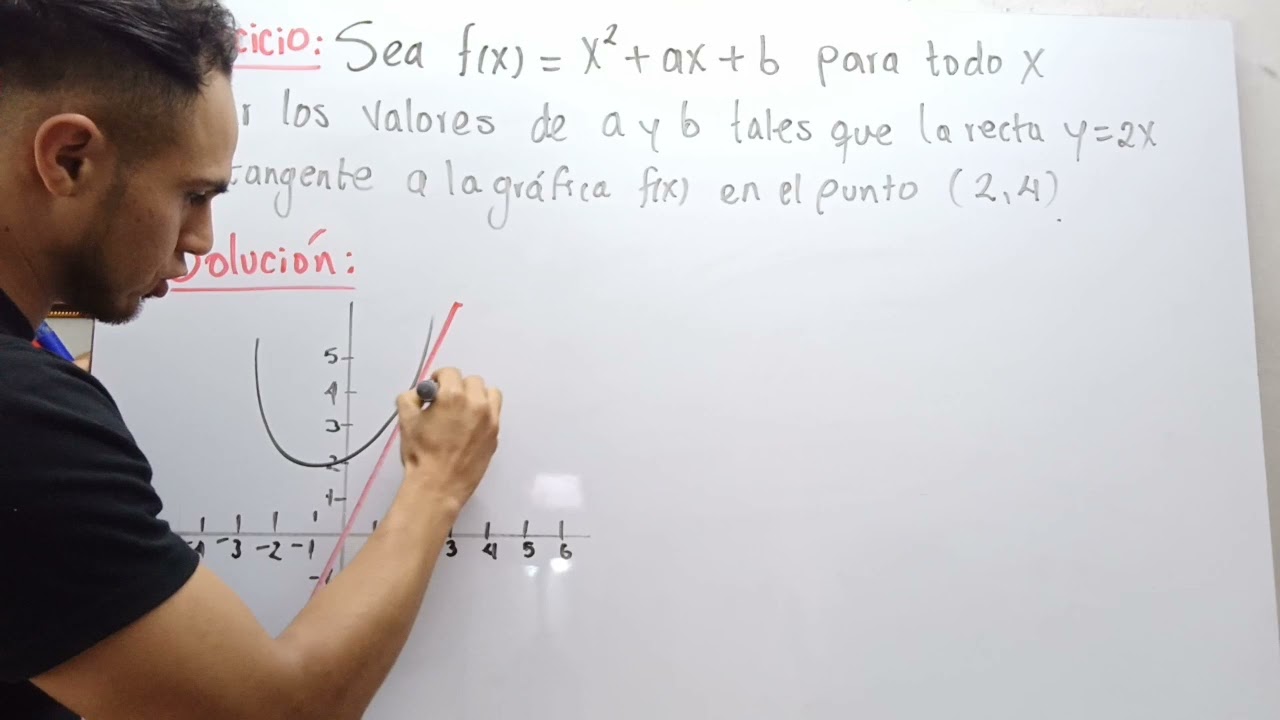 cicio: Sea f(x) = x² + ax + b para todo x
r los valores de a y b tales que la recta y=2x
tangente a la gráfica f(x) en el punto (2,4)
Solución:
5
4
3
2
1
-4 -3 -2 -1 3 4 5 6